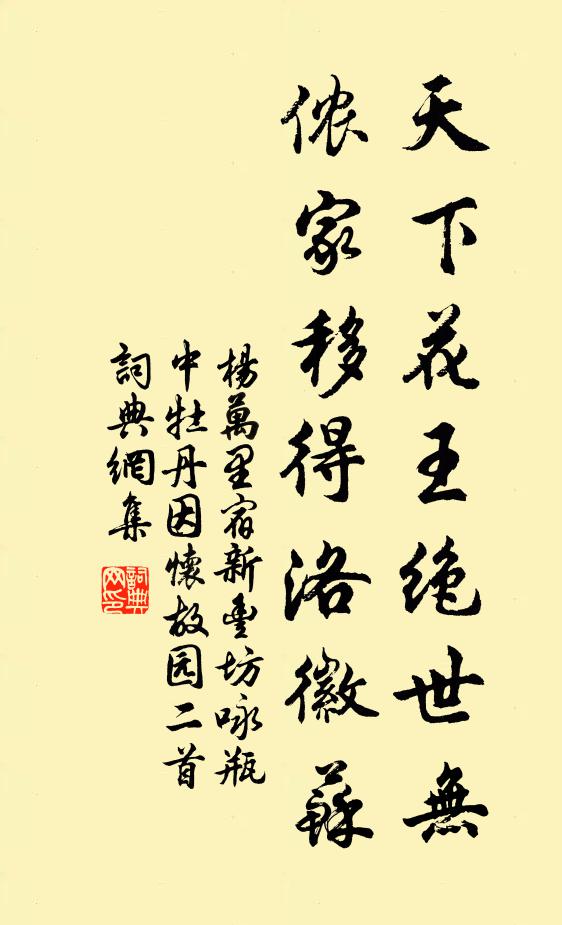 天下花王绝世無
侬家移得洛徽蘇
楊萬里宿新豐坊咏瓶
中牡丹因懷故园二首
詞典網集
詞典网印